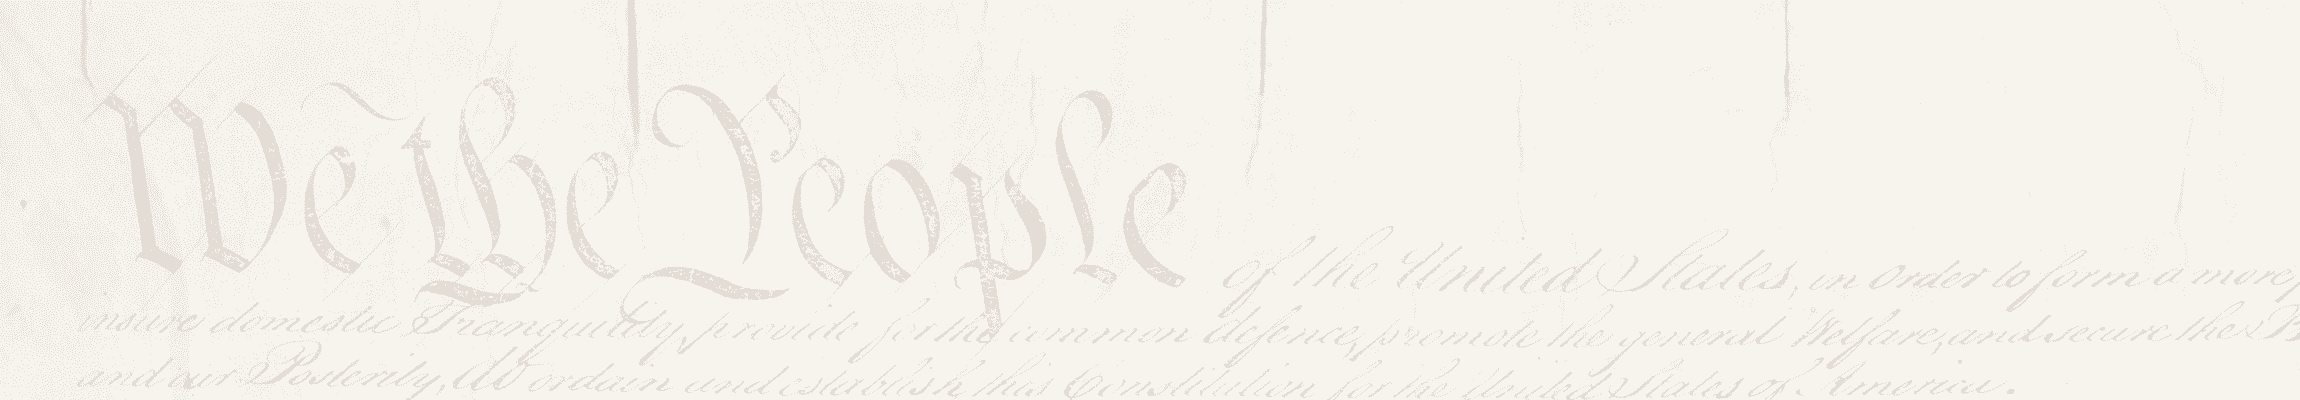 We the People of the United States, in Order to form a more
insure domestic Tranquility, provide for the common defence, promote the general Welfare, and secure the
and our Posterity, do ordain and establish this Constitution for the United States of America.